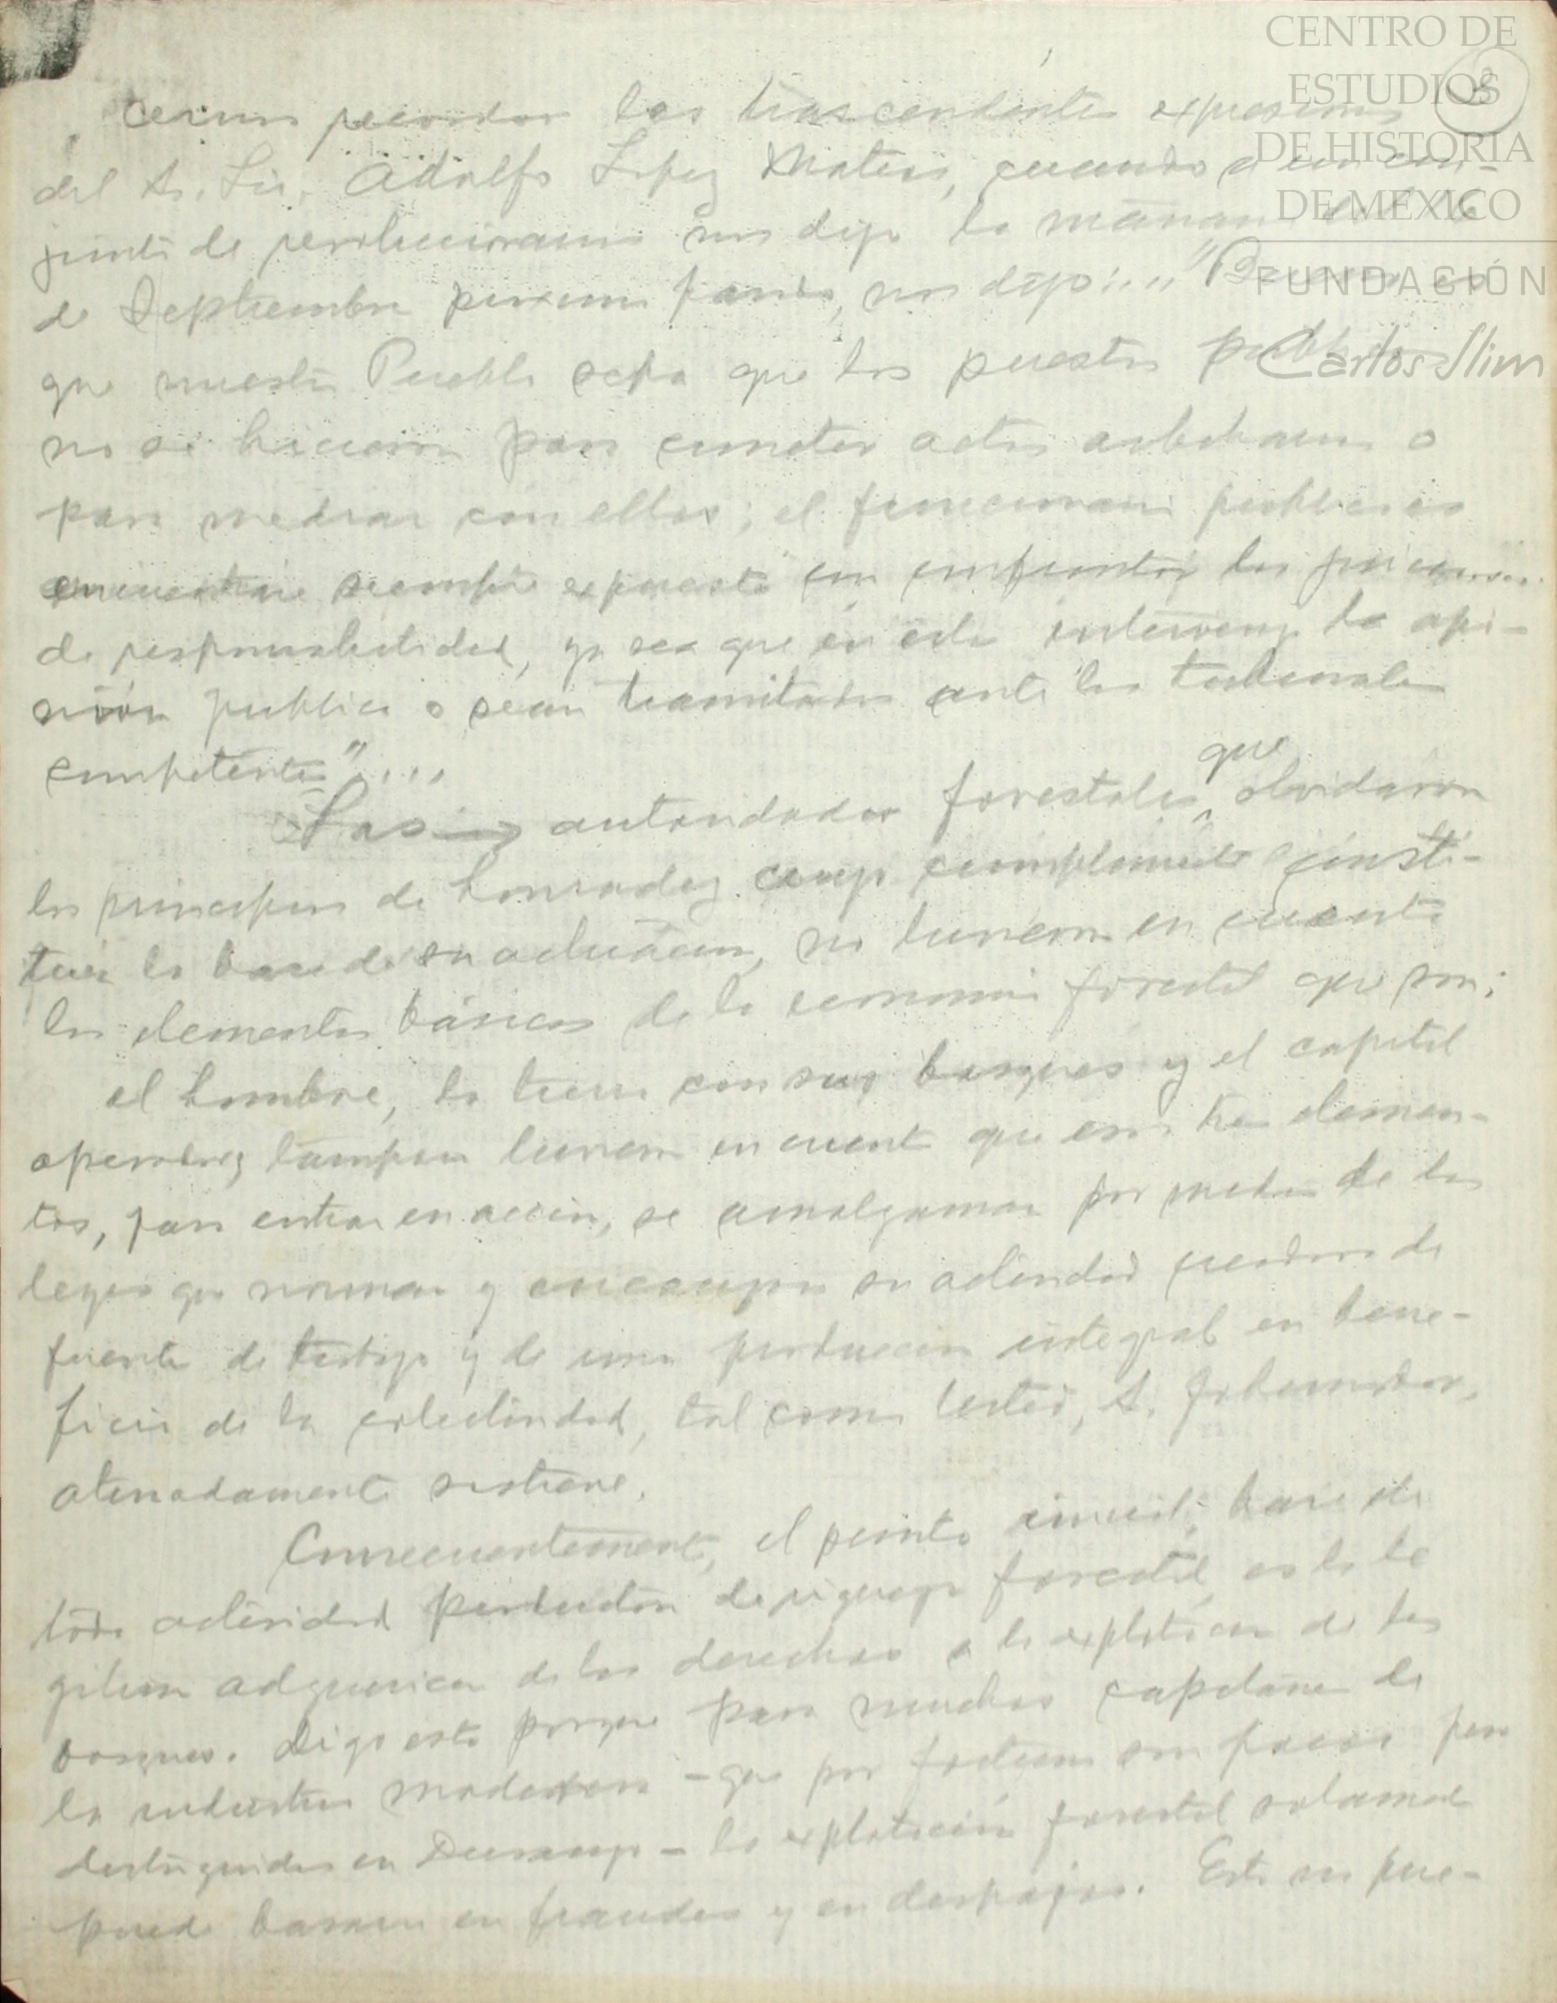 CENTRO DE
ESTUDIOS
DE HISTORIA
DE MÉXICO
FUNDACIÓN
Carlos Slim
recordar las trascendentes expresiones
del Sr. Lic. Adolfo López Mateos, cuando a un con-
junto de revolucionarios nos dijo la mañana del
de Septiembre proximo pasado, nos dijo: .. "Bueno es
que nuestro Pueblo sepa que los puestos publicos
no se hicieron para cometer actos arbitrarios o
para medrar con ellos; el funcionario publico
siempre expuesto con enfrentar los juicios
de responsabilidad, ya sea que en ello intervenga la opi-
nión publica o sean tramitados ante los tribunales
competentes"....
Las autoridades forestales que olvidaron
los principios de honradez cuyo cumplimiento consti-
tuia la base de su actuacion, no tuvieron en cuenta
los elementos básicos de la economia forestal que son:
el hombre, la tierra con sus bosques y el capital
operador; tampoco tuvieron en cuenta que esos tres elemen-
tos, para entrar en accion, se amalgaman por medio de las
leyes que norman y encauzan su actividad creadora de
fuentes de trabajo y de una produccion integral en bene-
ficio de la colectividad, tal como Usted, Sr. Gobernador,
atinadamente sostiene.
Consecuentemente, el punto inicial, base de
toda actividad productora de riqueza forestal, es la le
gitima adquisicion de los derechos a la explotacion de los
bosques. Digo esto porque para muchos capitanes de
la industria maderera - que por fortuna son pocos pero
distinguidos en Durango - la explotación forestal solamente
puede basarse en fraudes y en despojos. Esto no pue-